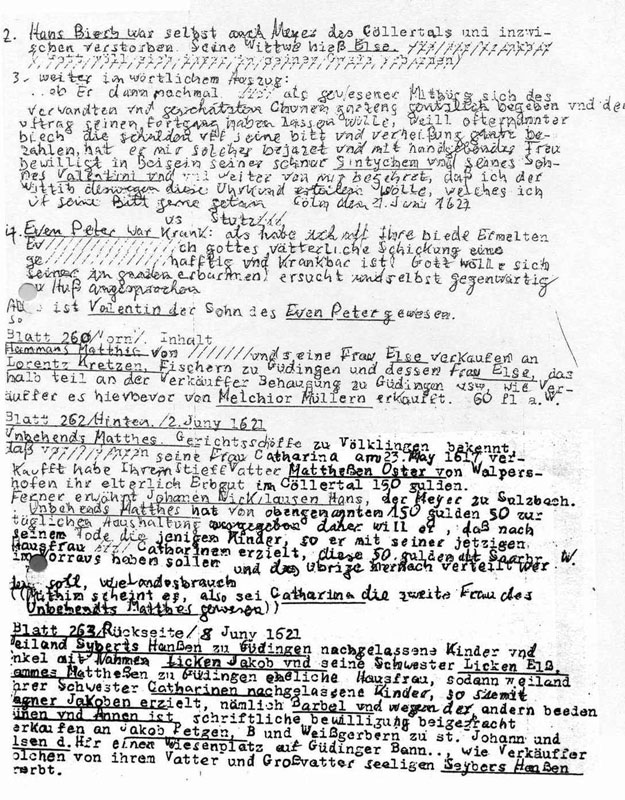 2. Hans Bierh war selbst auch Meyer des Cöllertals und inzwi-
schen verstorben. Seine Wittwe hieß Else.
3. weiter im wörtlichem Auszug:
... ob Er dann nochmal als gewesener Mitbürg sich des
verwandten vnd
seinen haben lassen wille, weill oftermannter
biech die schulden vff seine bitt und verheißung be-
zahlen, hat er mir solcher bejazet und mit Frau
bewilligt in Beisein seiner schnur Sintychem vnd seines Soh-
nes Valentini vnd vil weiter von mir begehret, daß ich der
Wittib deswegen diese Uhrkund erteilen wölle, welches ich
uf seine Bitt gerne getan Cöln den 21. Juni 1627
4. Even Peter war krank: als habe Ihre biede Ermelten
ich gottes vätterliche Schickung eine
hafftig vnd Krankbar ist! Gott wölle sich
seiner in gnaden erbarmen) ersucht undselbst gegenwärtig
zu Huß angesprochen
Also ist Valentin der Sohn des Even Peter gewesen.
Blatt 260/Vorn/. Inhalt
Hammans Matthis von und seine Frau Else verkaufen an
Lorentz Kretzen, Fischern zu Güdingen und dessen Frau Else, das
halb teil an der Verkäuffer Behaugung zu Güdingen usw. wie Ver-
äuffer es hiebevor von Melchior Müllern erkaufft. 60 fl a.W.
Blatt 262/Hinten./2. Juny 1621
Unbehends Matthes. Gerichtsschöffe zu Völklingen bekennt,
daß seine Frau Catharina am 23. May 1617 ver-
kaufft habe Ihrem Stieff Vatter Mattheßen Oster von Walpers-
hofen ihr elterlich Erbgut im Cöllertal 150 gulden.
Ferner erwähnt Johanen Nickilausen Hans, der Meyer zu Sulzbach.
Unbehends Matthes hat von obengenannten 150 gulden 50 zur
täglichen Haushaltung ausgegeben daher will er, daß nach
seinem Tode die jenigen Kinder, so er mit seiner jetzigen
Hausfrau Catharinen erzielt, diese 50 gulden alt Saarbr. W.
im vorraus haben sollen und das übrige hernach verteilt wer
den soll, wie landesbrauch
((Mithim scheint es, also sei Catharina die zweite Frau des
Unbehendts Matthes gewesen))
Blatt 263/Rückseite/ 8 Juny 1621
eiland Syberts Hanßen zu Güdingen nachgelassene Kinder vnd
nkel mit Nahmen Licken Jakob vnd seine Schwester Licken Elß,
ammes Mattheßen zu Güdingen eheliche Hausfrau, sodann weiland
hrer Schwester Catharinen nachgelassene Kinder, so siemit
agner Jakoben erzielt, nämlich Barbel und wegen der andern beeden
ünen vnd Annen ist schriftliche bewilligung beigebracht
erkaufen an Jakob Petgen, B und Weißgerbern zu st. Johann und
lsen d. Hfr einen Wiesenplatz auf Güdinger Bann.., wie Verkäuffer
olchen von ihrem Vatter und Großvatter seeligen Seybers Hanßen
rerbt.